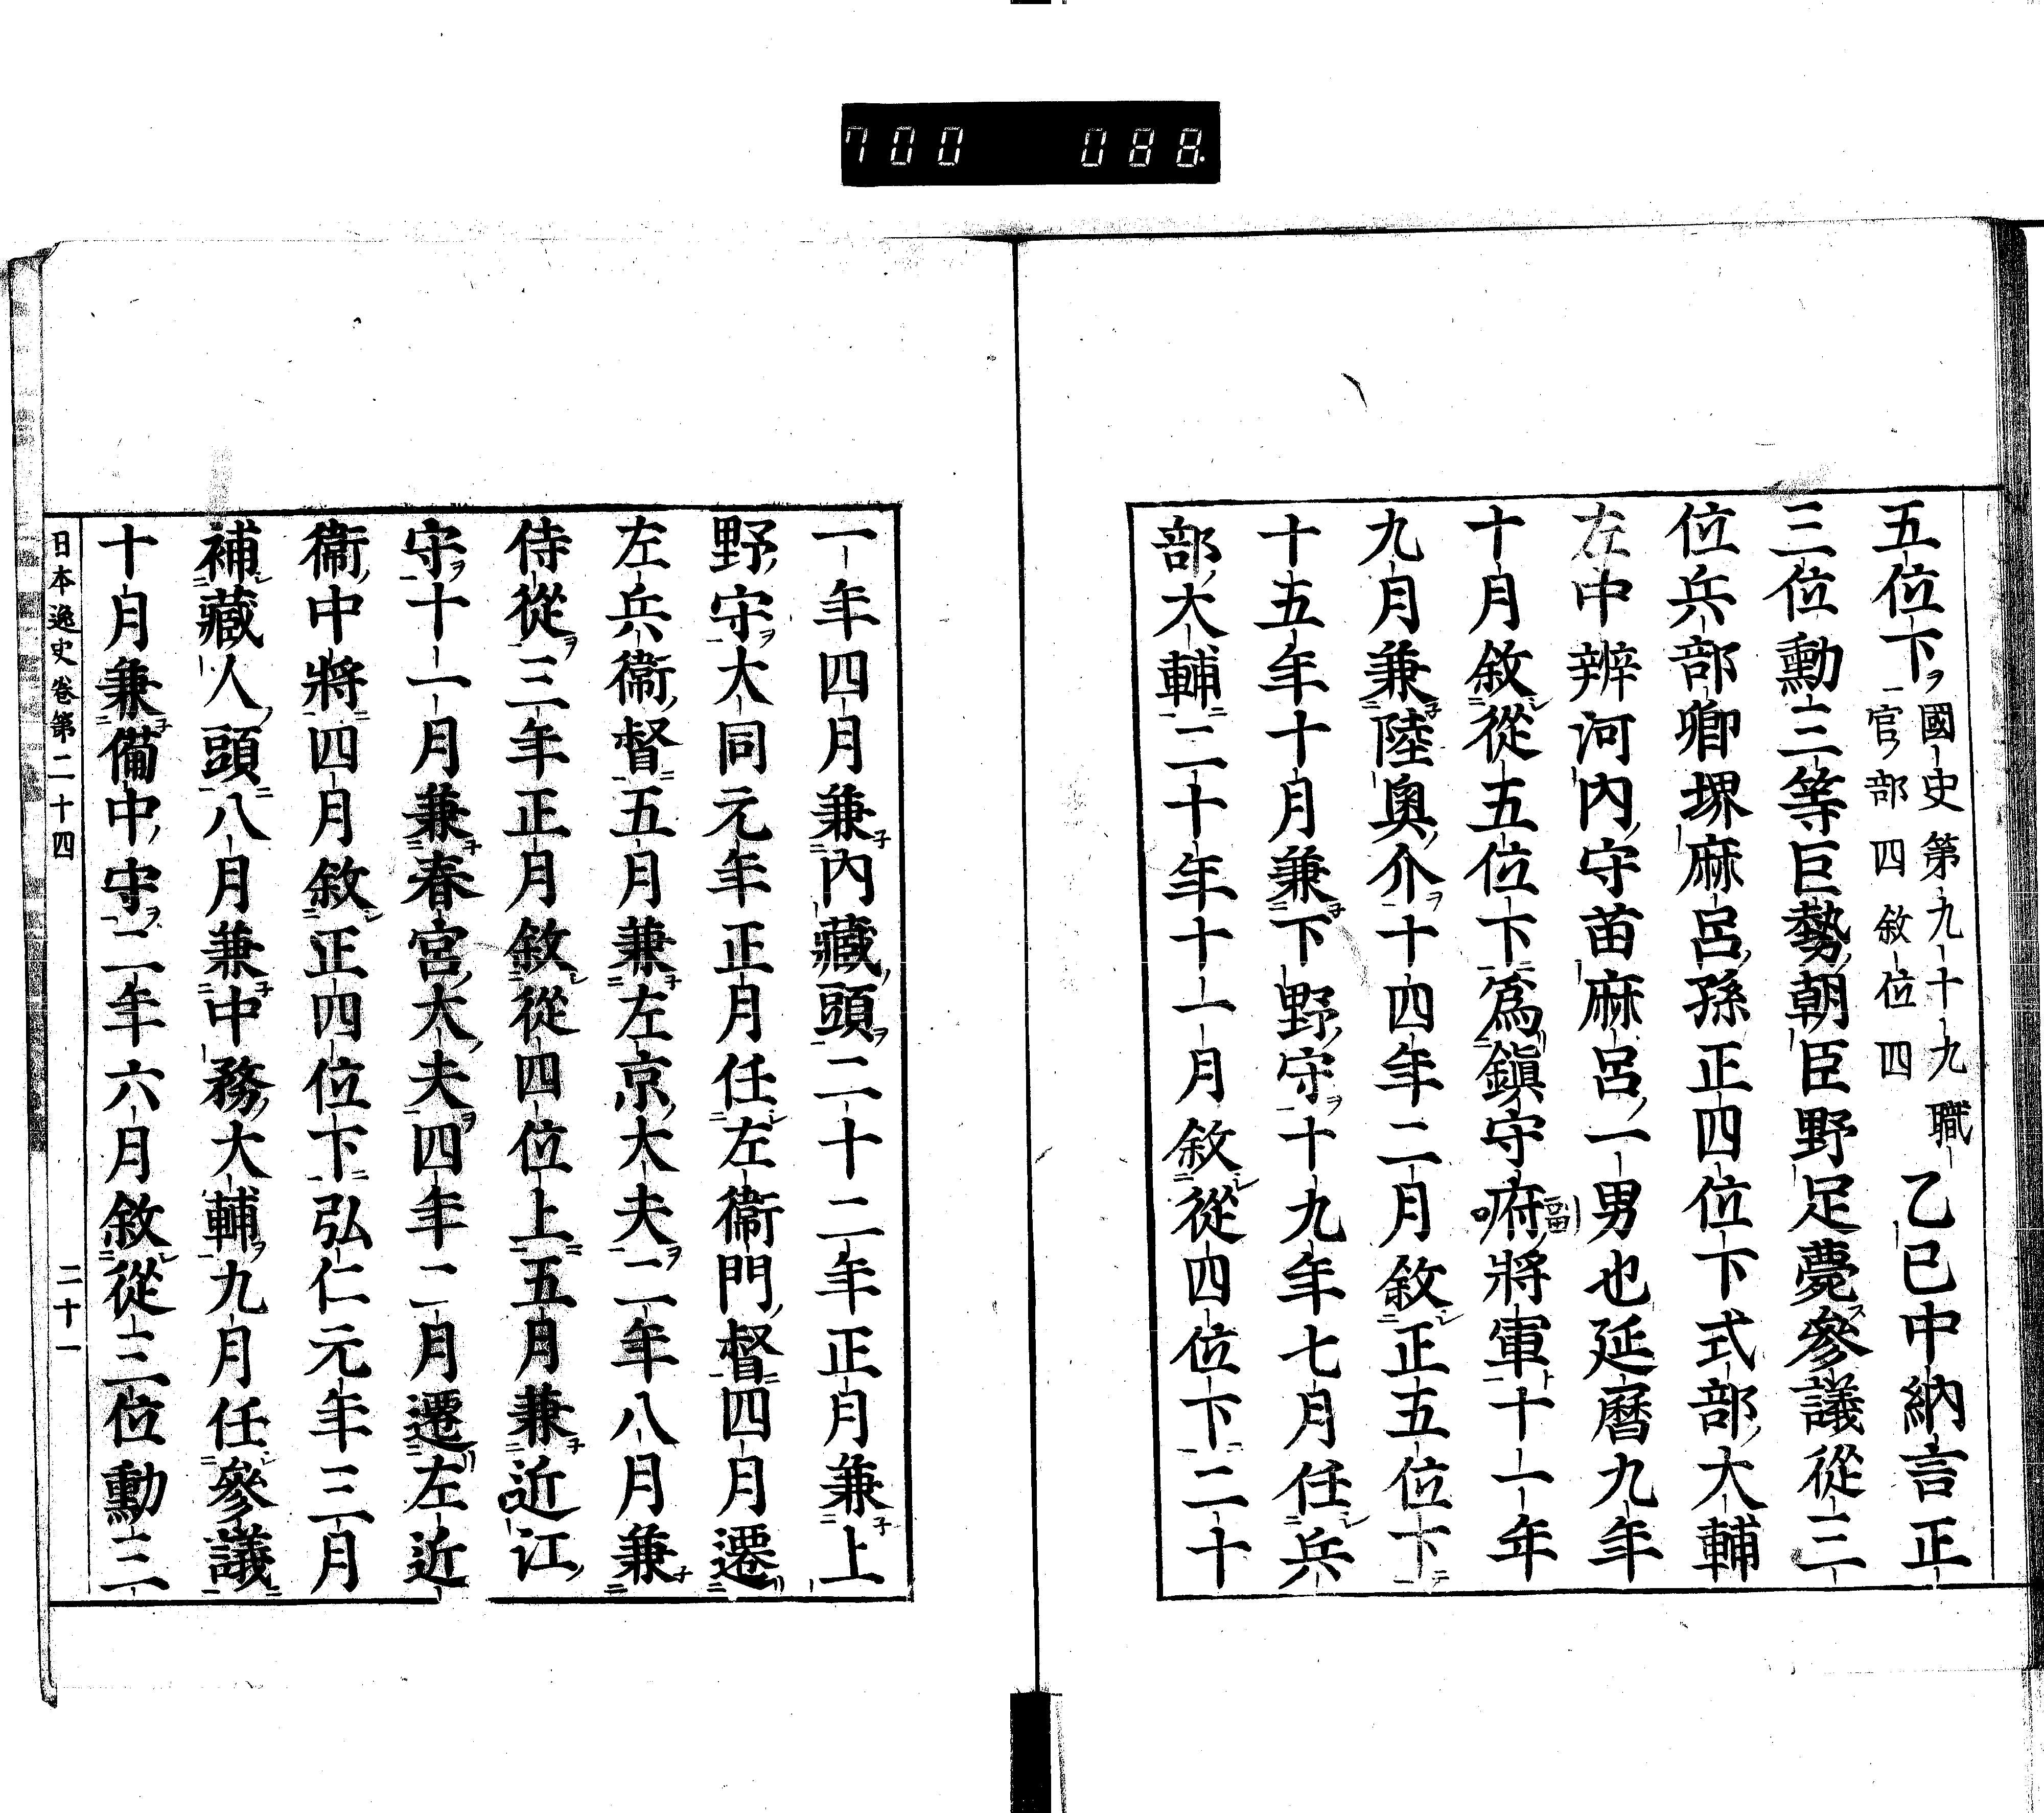 700 088
五位下國史第九十九職
官部四敘位四
乙巳中納言正
三位勳三等巨勢朝臣野足薨參議從三
位兵部卿堺麻呂孫正四位下式部大輔
左中辨河内守苗麻呂一男也延曆九年
十月敘從五位下爲鎭守府將軍十一年
九月兼陸奧介十四年二月敘正五位下
十五年十月兼下野守十九年七月任兵
部大輔二十年十一月敘從四位下二十
一年四月兼內藏頭二十二年正月兼上
野守大同元年正月任左衞門督四月遷
左兵衞督五月兼左京大夫二年八月兼
侍從三年正月敘從四位上五月兼近江
守十一月兼春宮大夫四年二月遷左近
衞中將四月敘正四位下弘仁元年三月
補藏人頭八月兼中務大輔九月任參議
十月兼備中守二年六月敘從三位勳三
日本逸史卷第二十四 二十一